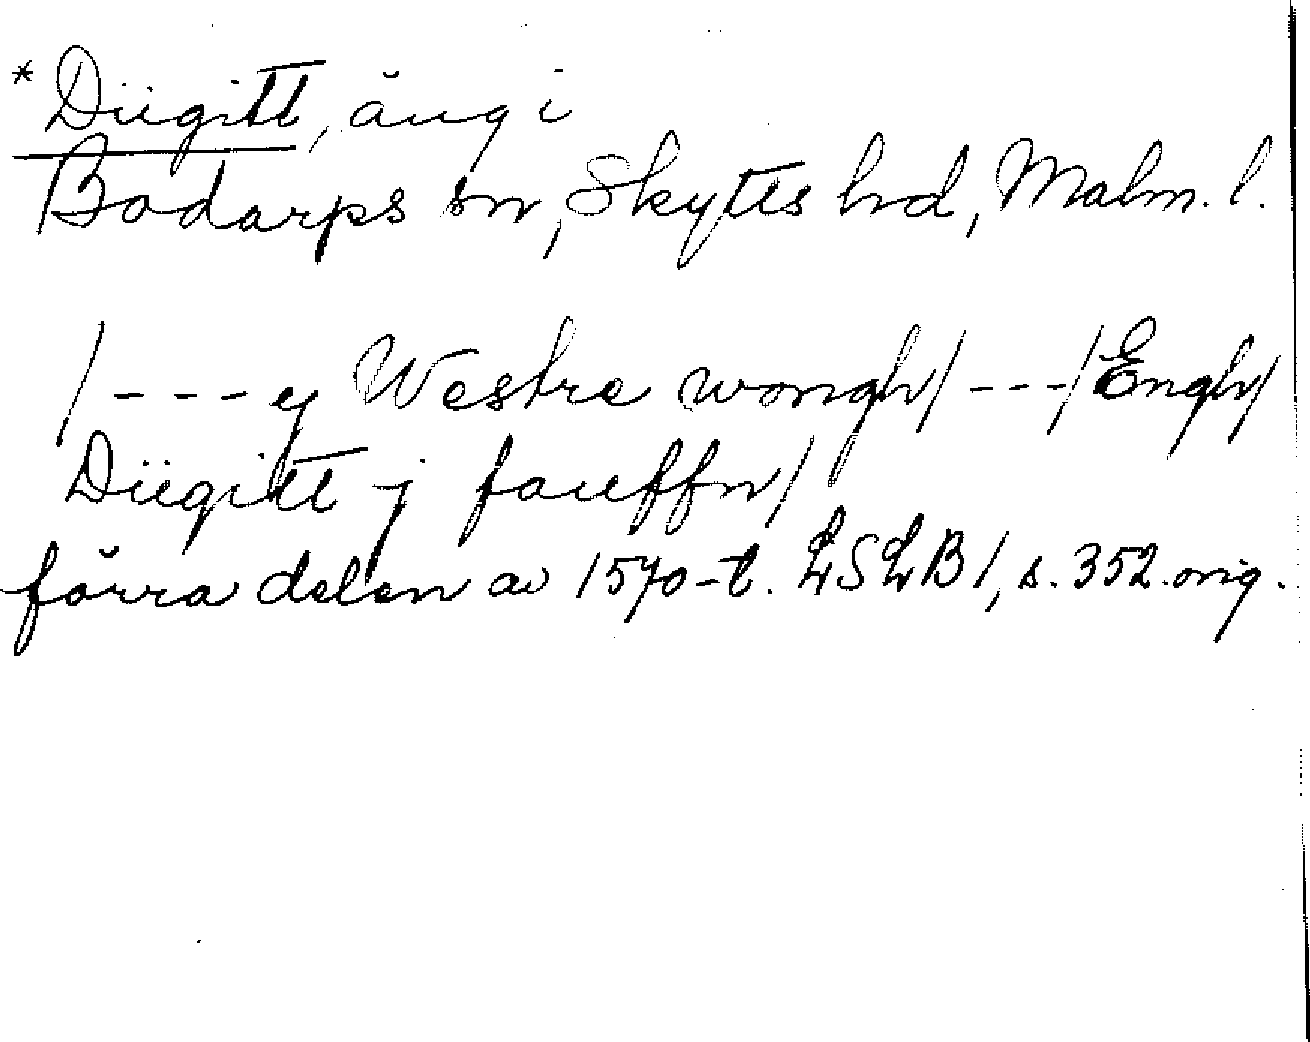 * Dügitt, äng i
Bodarps sn, Skytts hd, Malm. l.
/---ej Westre wongh/---/Engh/
Dügitt j faueffn/
förra delen av 1570-t. LSLB 1, s. 352 orig.